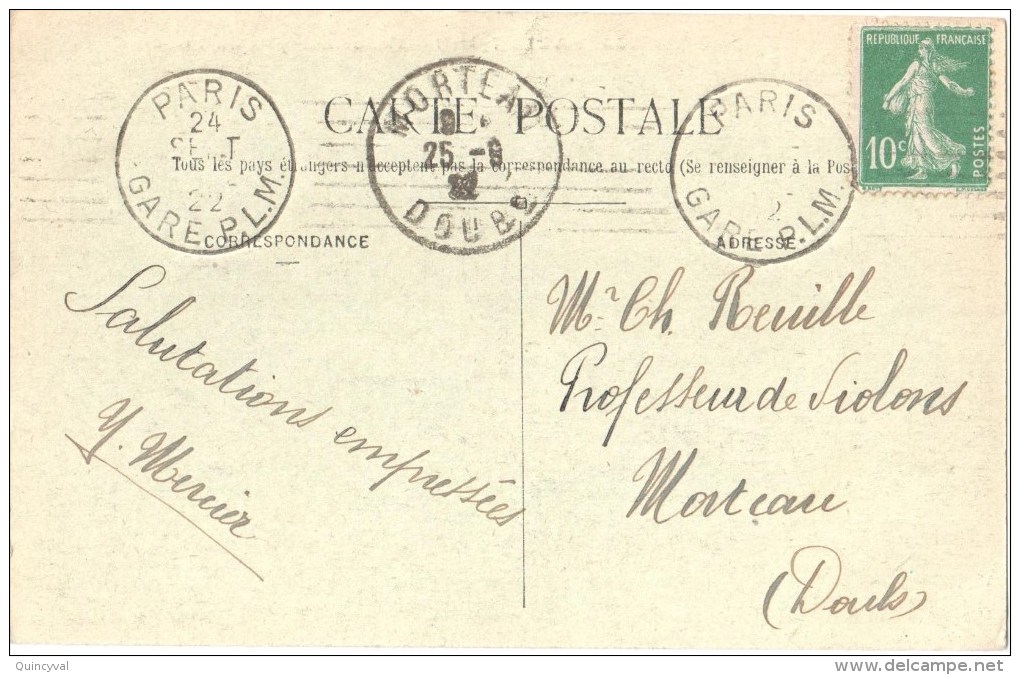 CARTE POSTALE
Tous les pays étrangers n'acceptent pas la correspondance au recto (Se renseigner à la Pos
CORRESPONDANCE
ADRESSE
PARIS
24
SEPT
22
GARE P.L.M.
MORTEAU
25 - 9
22
DOUBS
PARIS
2
GARE P.L.M.
RÉPUBLIQUE FRANÇAISE
10c
POSTES
Salutations empressées
Y. Mercier
Mr Ch. Reuille
Professeur de Violons
Morteau
(Doubs)
Quincyval
© www.delcampe.net